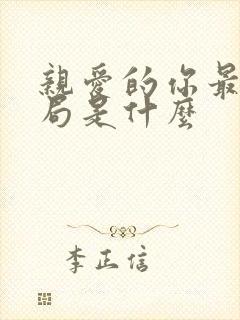 親愛的你最
局是什麼
李正信